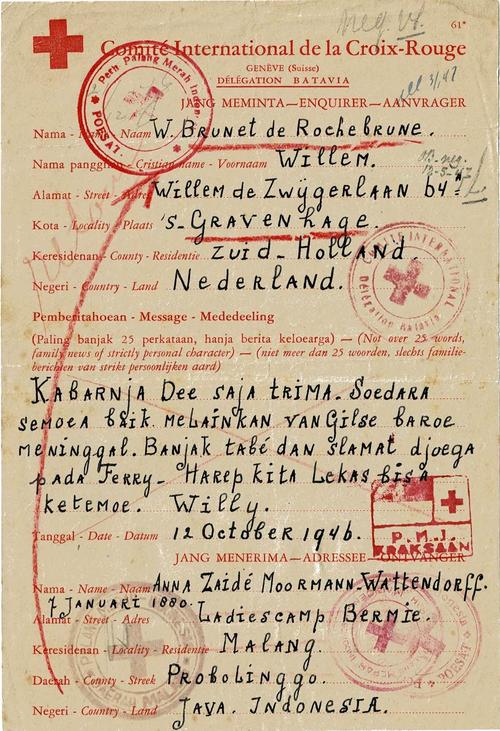 neg. VI.
61*
Comité International de la Croix-Rouge
GENÈVE (Suisse)
DÉLÉGATION BATAVIA
JANG MEMINTA—ENQUIRER—AANVRAGER
Nama - Name - Naam W. Brunet de Rochebrune.
Nama panggilan - Christian name - Voornaam Willem.
Alamat - Street - Adres Willem de Zwijgerlaan 64
Kota - Locality - Plaats 's-Gravenhage.
Keresidenan - County - Residentie Zuid-Holland.
Negeri - Country - Land Nederland.
Pemberitahoean - Message - Mededeeling
(Paling banjak 25 perkataan, hanja berita keloearga) — (Not over 25 words,
family news of strictly personal character) — (niet meer dan 25 woorden, slechts familie-
berichten van strikt persoonlijken aard)
Kabarnja Dee saja trima. Soedara
semoea baik. melainkan van Gilse baroe
meninggal. Banjak tabé dan slamat djoega
pada Ferry- Harep kita lekas bisa
ketemoe. Willy.
Tanggal - Date - Datum 12 October 1946.
P.M.I.
KRAKSAAN
JANG MENERIMA - ADRESSEE - ONTVANGER
Nama - Name - Naam Anna Zaidé Moormann-Wattendorff.
7 Januari 1880.
Alamat - Street - Adres Ladiescamp Bermie.
Keresidenan - Locality - Residentie Malang.
Daerah - County - Streek Probolinggo.
Negeri - Country - Land Java. Indonesia.